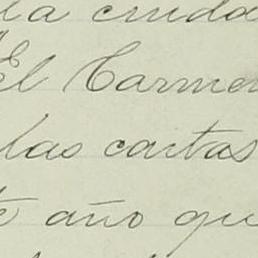 la ciuda
El Carmen
las cartas
te año qu